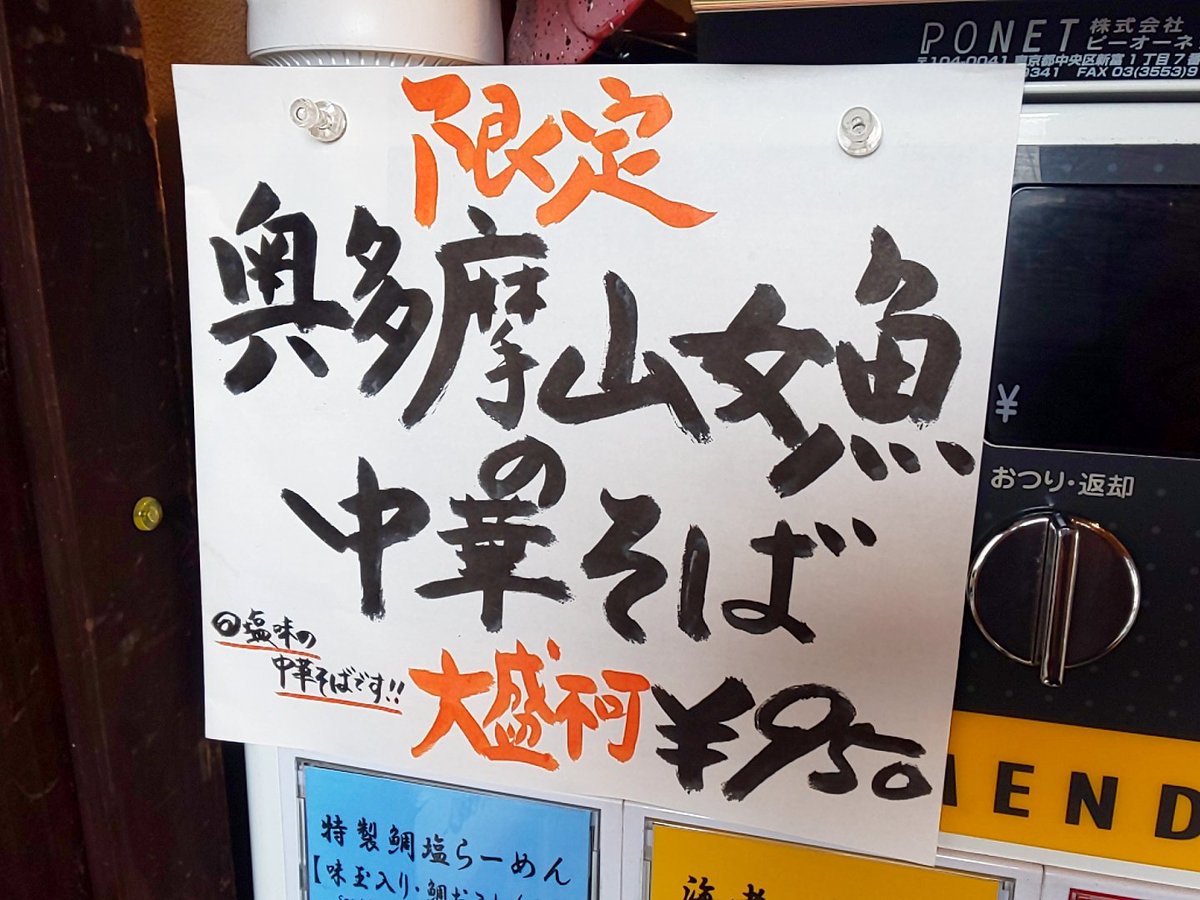 PONET 株式会社
ピーオーネ
〒104-0041 東京都中央区新富1丁目7番
0341 FAX 03(3553)9
限定
奥多摩山女魚
の
中華そば
塩味の
中華そばです!!
大盛不可 ¥950
¥
おつり・返却
MEND
特製鯛塩らーめん
【味玉入り・鯛
海老